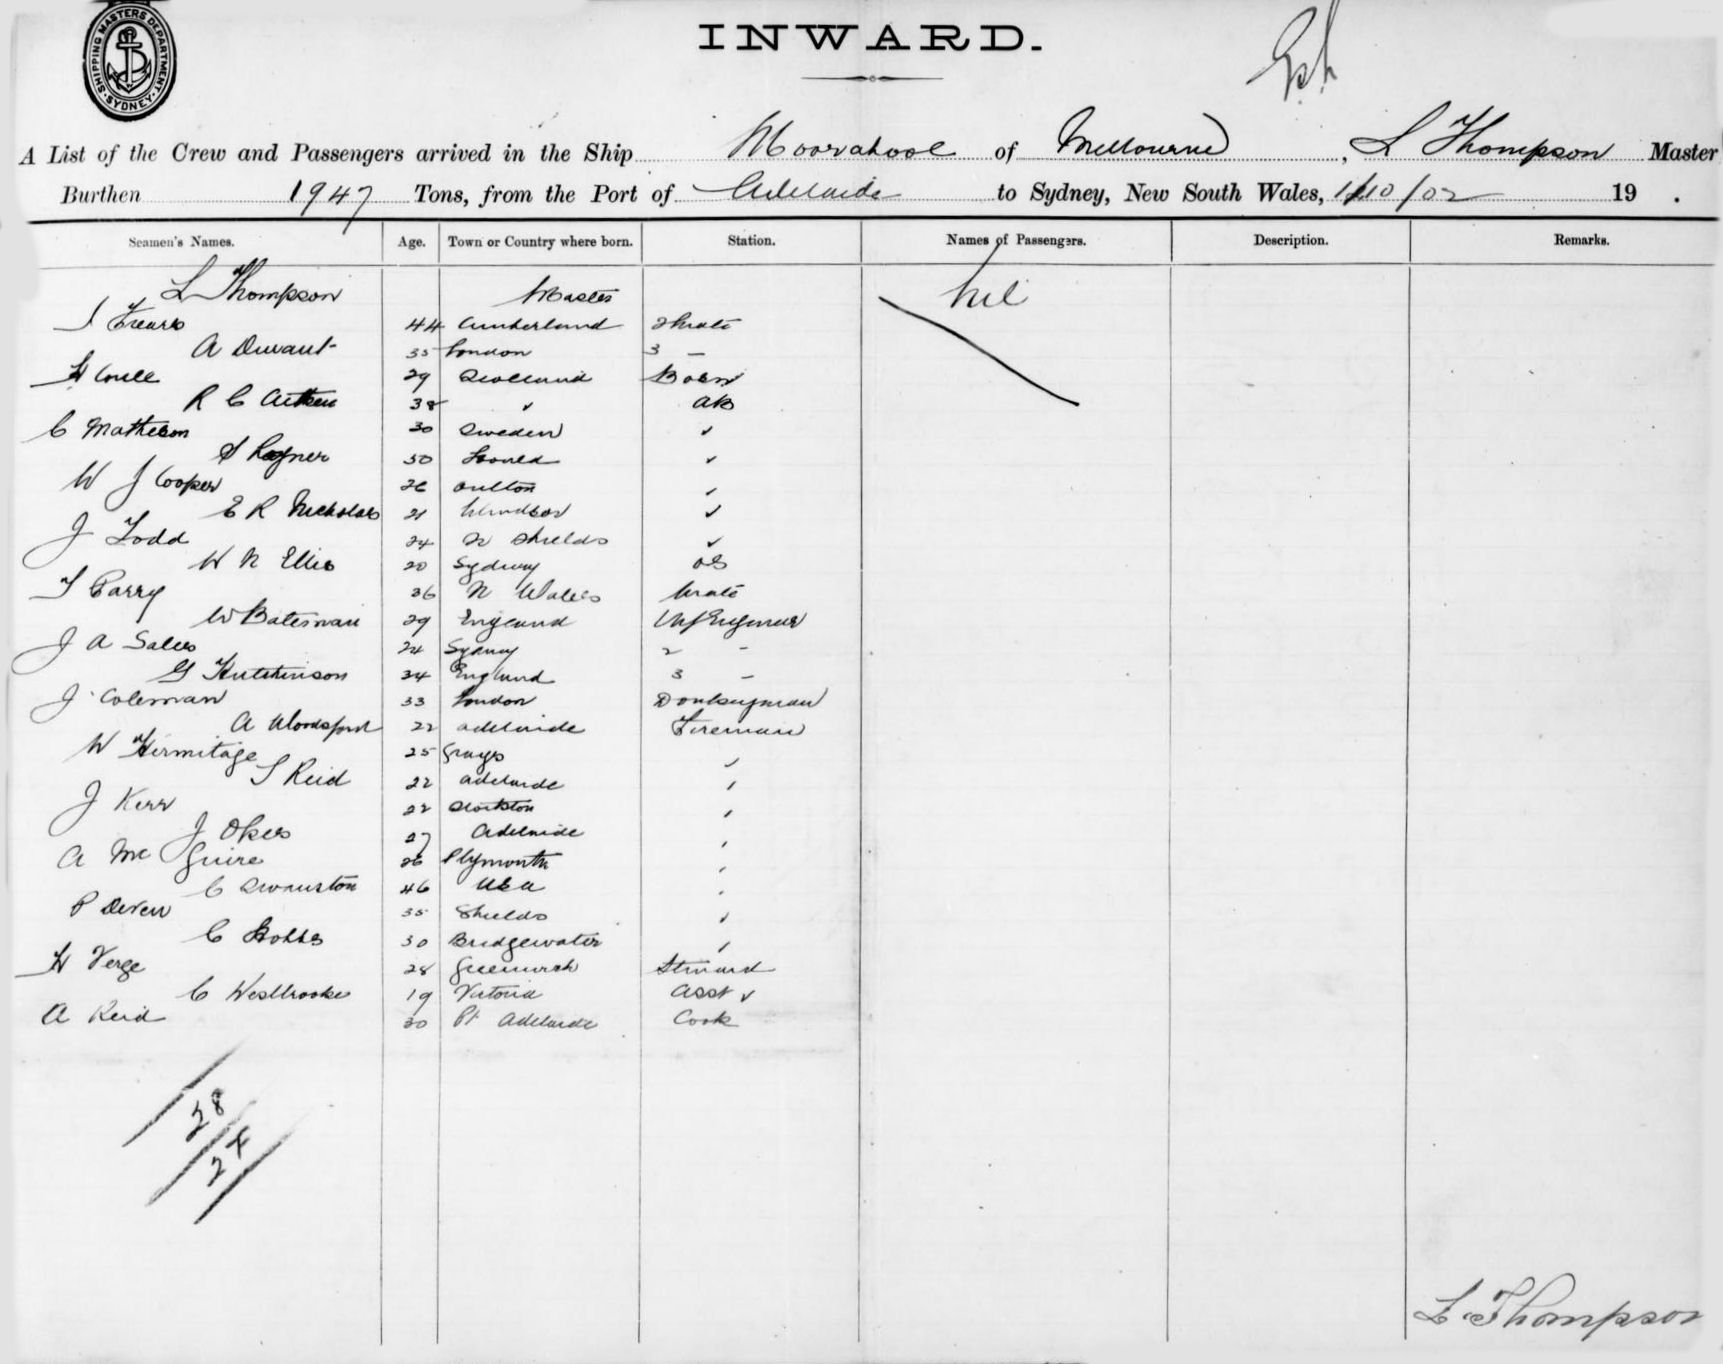 SHIPPING MASTERS DEPARTMENT. SYDNEY.
INWARD.
A List of the Crew and Passengers arrived in the Ship Moorabool of Melbourne, L Thompson Master
Burthen 1947 Tons, from the Port of Adelaide to Sydney, New South Wales, /10/02 19 .
Seamen's Names. Age. Town or Country where born. Station. Names of Passengers. Description. Remarks.
L Thompson Master nil
44 Cumberland 2 Mate
A Durant 35 London 3 —
29 Scotland Bosn
R C Aitken 38 ✓ AB
C Matheson 30 Sweden ✓
50 ✓
W J Cooper 26 Oulton ✓
E R Nicholas 21 Windsor ✓
J Todd 24 N Shields ✓
W N Ellis 20 Sydney OS
T Parry 36 N Wales Mate
W Bateman 29 England Chf Engineer
J A Sales 24 Sydney 2 -
G Hutchinson 34 England 3 -
J Coleman 33 London Donkeyman
A Woodsford 22 Adelaide Fireman
W Hermitage 25 Grays ✓
S Reid 22 Adelaide ✓
J Kerr 22 Stockton ✓
J Okes 27 Adelaide ✓
A McGuire 26 Plymouth ✓
C Swanston 46 USA ✓
P Deven 35 Shields ✓
C Hobbs 30 Bridgewater ✓
H Verge 28 Greenwich Steward
C Westbrooke 19 Victoria Asst ✓
A Reid 30 Pt Adelaide Cook
28
24
L. Thompson